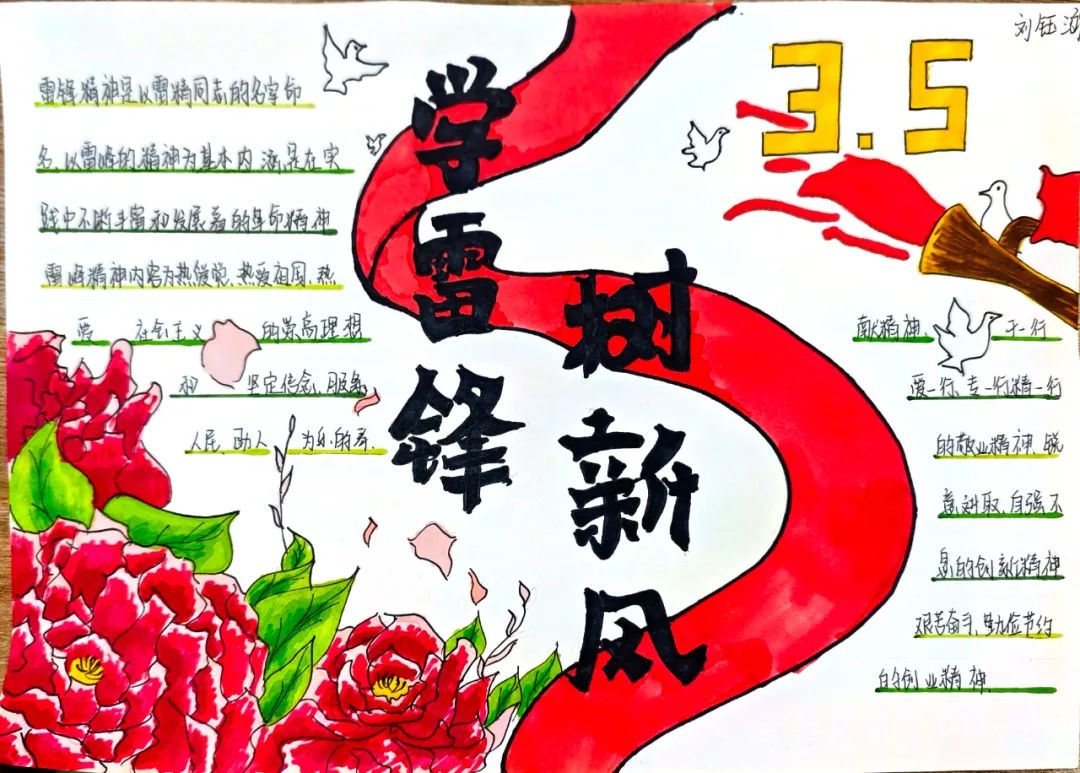 刘钰涵
3.5
学雷锋
树新风
雷锋精神是以雷精同志的名字命
名,以雷峰的精神为基本内涵,是在实
践中不断丰富和发展着的革命精神
雷峰精神内容为热爱党、热爱祖国、热
爱 社会主义 的崇高理想
和 坚定信念、服务
人民、助人 为乐的奉
献精神、干一行
爱一行、专一行精一行
的敬业精神、锐
意进取、自强不
息的创新精神
艰苦奋斗、勤俭节约
的创业精神